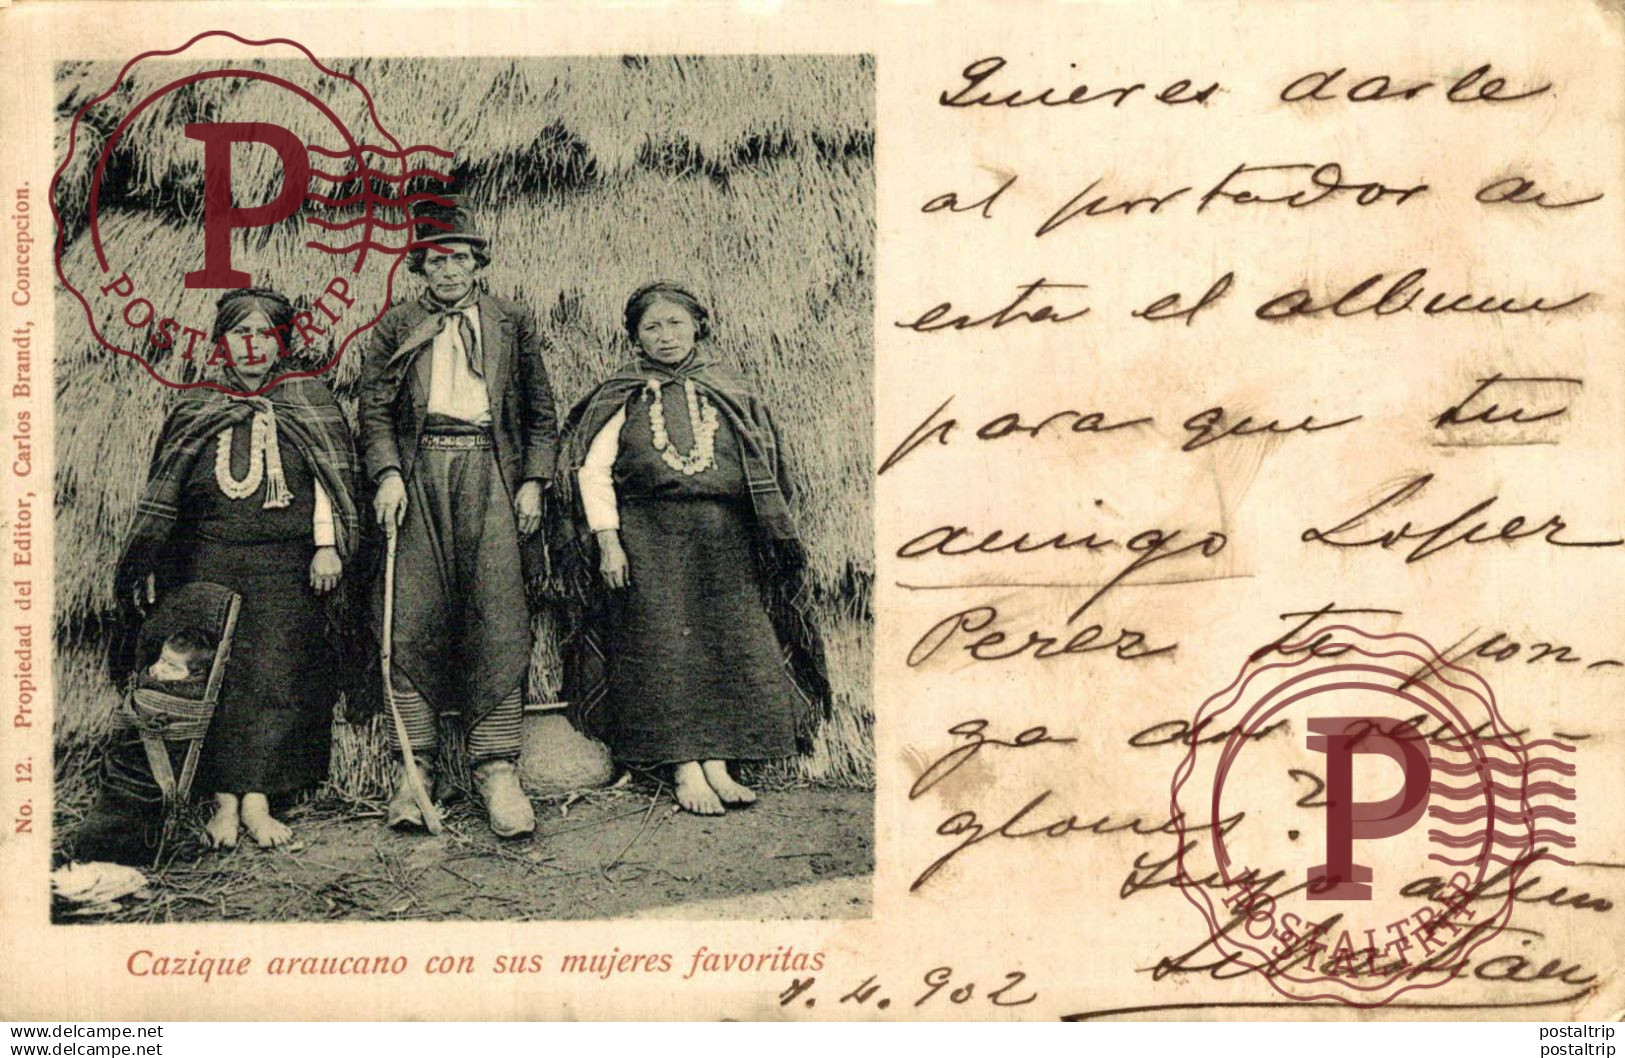 No. 12. Propiedad del Editor, Carlos Brandt, Concepcion.
P
POSTALTRIP
Cazique araucano con sus mujeres favoritas
Quieres darle
al portador de
esta el album
para que tu
amigo Lopez
Perez te pon-
ga dos ren-
glones?
Tuyo
Sebastian
7.4.902
P
POSTALTRIP
POSTALTRIP
www.delcampe.net
www.delcampe.net
postaltrip
postaltrip